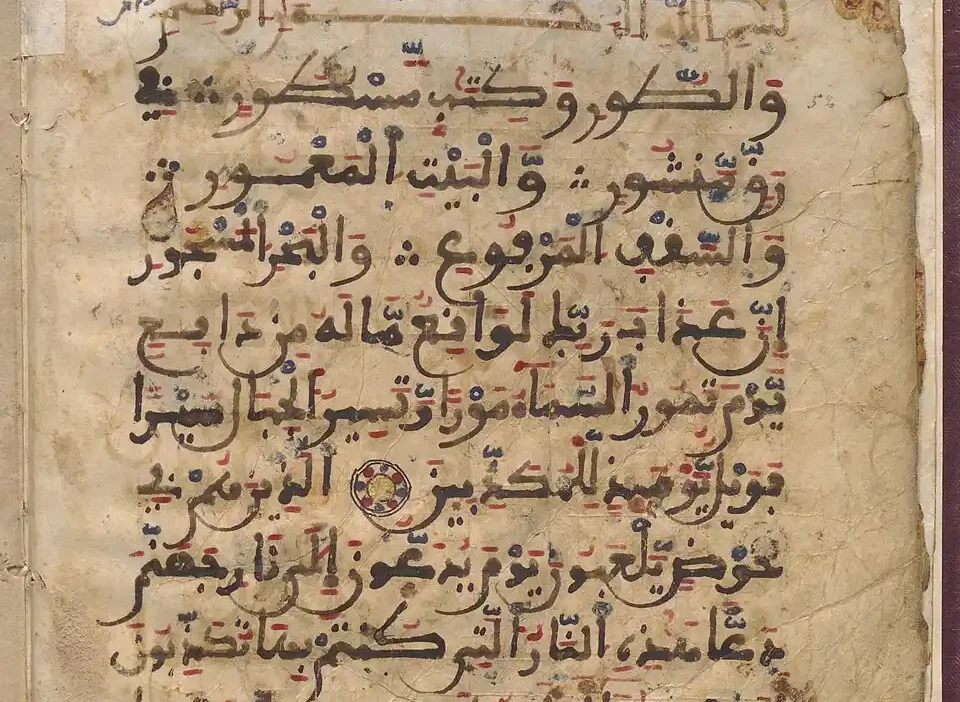 بسم الله الرحمن الرحيم
وَالطُّورِ وَكِتَٰبٍ مَّسْطُورٍ فِي
رَقٍّ مَّنشُورٍ وَالْبَيْتِ الْمَعْمُورِ
وَالسَّقْفِ الْمَرْفُوعِ وَالْبَحْرِ الْمَسْجُورِ
إِنَّ عَذَابَ رَبِّكَ لَوَاقِعٌ مَّا لَهُ مِن دَافِعٍ
يَوْمَ تَمُورُ السَّمَاءُ مَوْرًا وَتَسِيرُ الْجِبَالُ سَيْرًا
فَوَيْلٌ يَوْمَئِذٍ لِّلْمُكَذِّبِينَ الَّذِينَ هُمْ فِي
خَوْضٍ يَلْعَبُونَ يَوْمَ يُدَعُّونَ إِلَىٰ نَارِ جَهَنَّمَ
دَعًّا هَٰذِهِ النَّارُ الَّتِي كُنتُم بِهَا تُكَذِّبُونَ